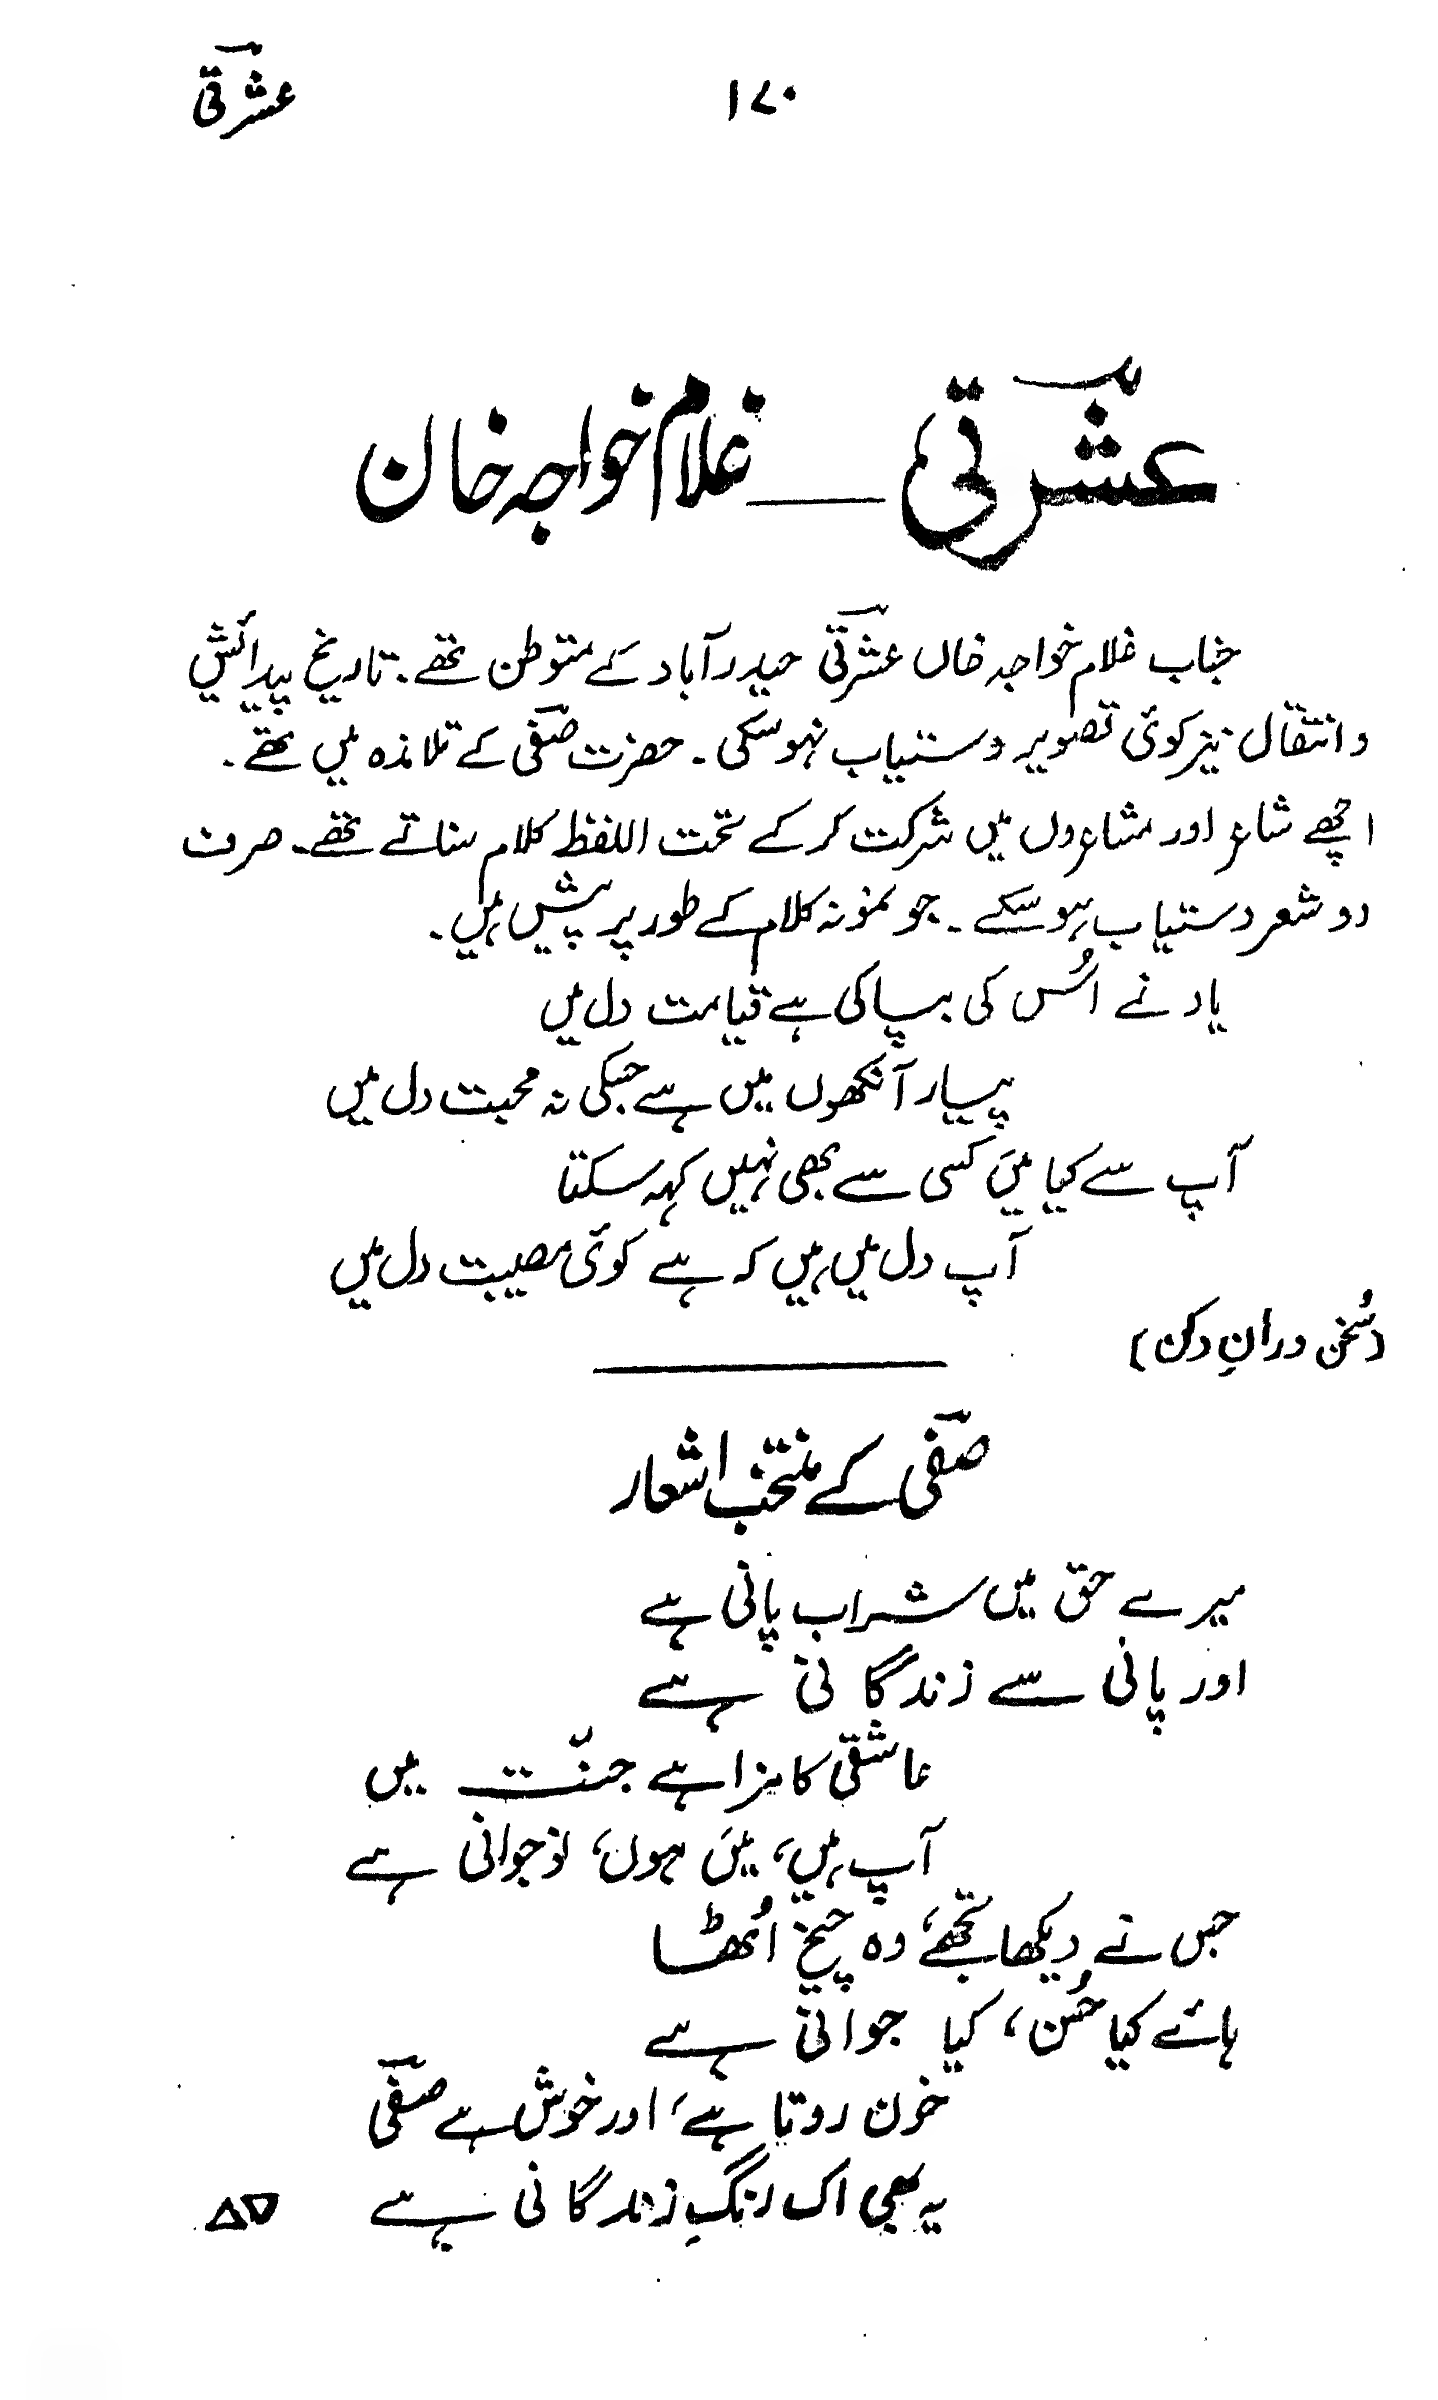 عشرتی ۱۷۰
عشرتی — غلام خواجہ خان
جناب غلام خواجہ خاں عشرتی حیدرآباد کے متوطن تھے۔ تاریخ پیدائش
و انتقال نیز کوئی تصویر دستیاب نہ ہوسکی۔ حضرت صفی کے تلامذہ میں تھے۔
اچھے شاعر اور مشاعروں میں شرکت کر کے تحت اللفظ کلام سناتے تھے۔ صرف
دو شعر دستیاب ہوسکے۔ جو نمونہ کلام کے طور پر پیش ہیں۔
یاد نے اُس کی بپا کی ہے قیامت دل میں
پیار آنکھوں میں ہے جسکی نہ محبت دل میں
آپ سے کیا میں کسی سے بھی نہیں کہہ سکتا
آپ دل میں ہیں کہ ہے کوئی مصیبت دل میں
(سُخن ورانِ دکن)
صفی کے منتخب اشعار
میرے حق میں شراب پانی ہے
اور پانی سے زندگانی ہے
عاشقی کا مزا ہے جنّت میں
آپ ہیں، میں ہوں، نوجوانی ہے
جس نے دیکھا تجھے، وہ چیخ اُٹھا
ہائے کیا حُسن، کیا جوانی ہے
خون روتا ہے، اور خوش ہے صفی
یہ بھی اک رنگِ زندگانی ہے